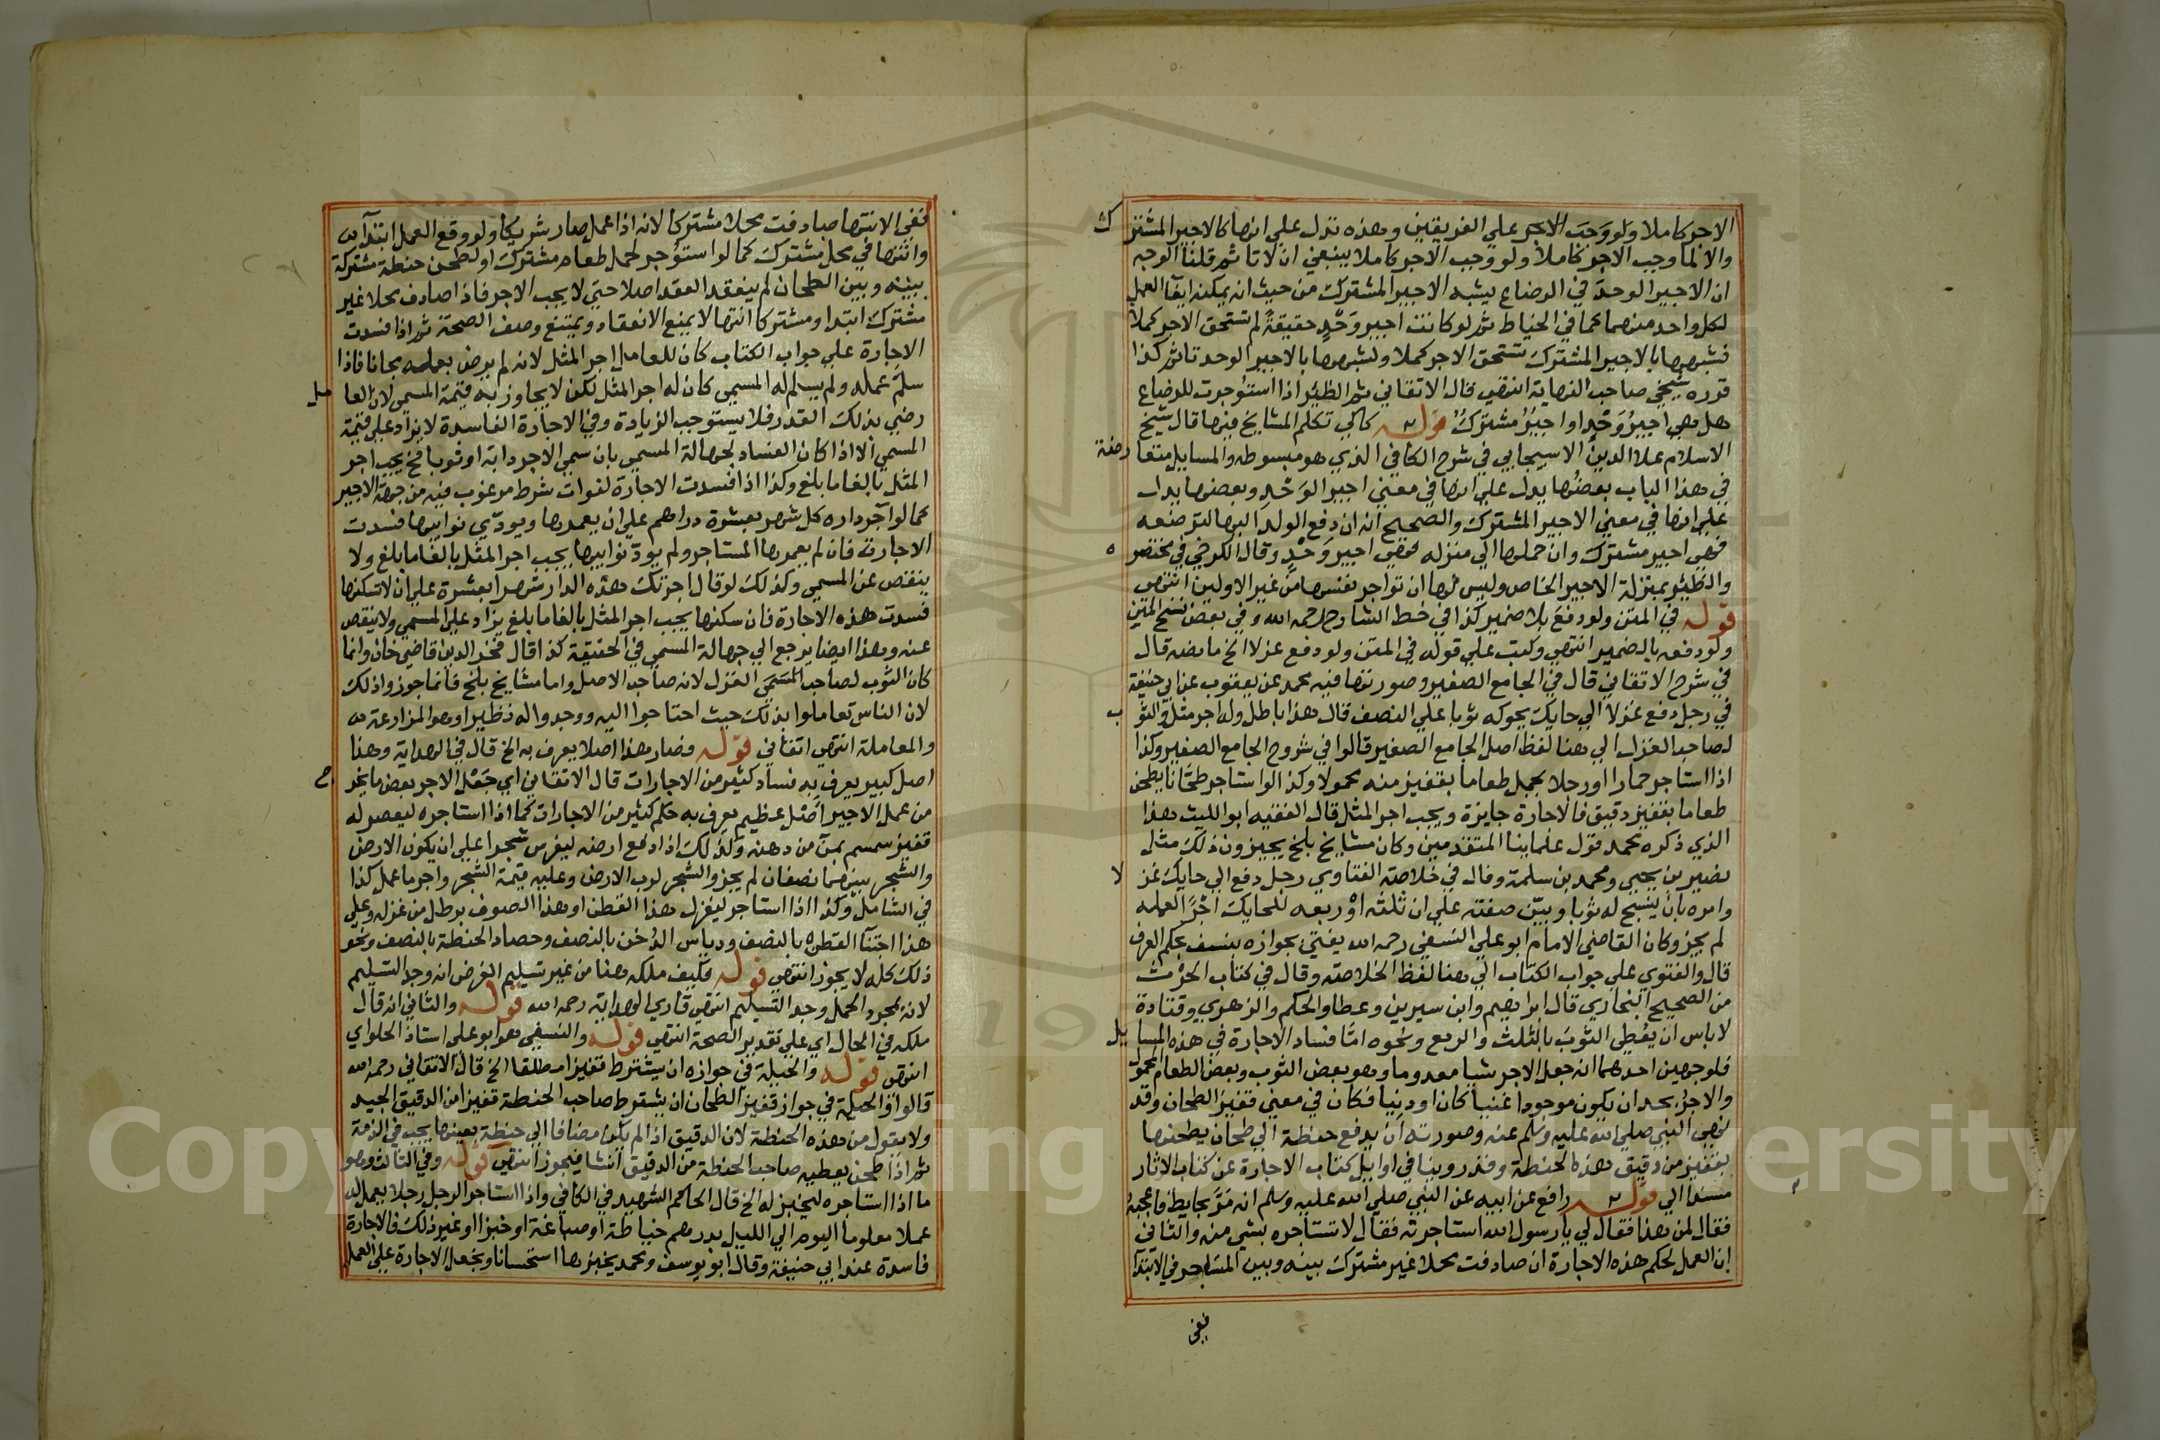 الاجر كاملا ولو وجب الاجر علي الفريقين وهذه تدل علي انها كالاجير المشترك
والا لما وجب الاجر كاملا ولو وجب الاجر كاملا ينبغي ان لا تاثم قلنا الوجه
ان الاجير الوحد في الرضاع يشبه الاجير المشترك من حيث انه يمكنه ايفا العمل
لكل واحد منهما كما في الخياط ثم لو كانت اجير وحد حقيقة لم تستحق الاجر كملا
فشبهها بالاجير المشترك تستحق الاجر كملا ولشبهها بالاجير الوحد تاثم كذا
قرره شيخي صاحب النهاية انتهي قال الاتقاني ثم الظئر اذا استؤجرت للرضاع
هل هي اجير وحد او اجير مشترك قوله كاكي تكلم المشايخ فيها قال شيخ
الاسلام علا الدين الاسبيجابي في شرح الكافي الذي هو مبسوطه والمسايل متعارضة
في هذا الباب بعضها يدل علي انها في معني اجير الوحد وبعضها يدل
علي انها في معني الاجير المشترك والصحيح انه ان دفع الولد اليها لترضعه
فهي اجير مشترك وان حملها الي منزله فهي اجير وحد وقال الكرخي في مختصره
والظئر بمنزلة الاجير الخاص وليس لها ان تواجر نفسها من غير الاولين انتهي
قوله في المتن ولو دفع بلا ضمير كذا في خط الشارح رحمه الله وفي بعض نسخ المتن
ولو دفعه بالضمير انتهي وكتب علي قوله في المتن ولو دفع غزلا الخ ما نصه قال
في شرح الاتقاني قال في الجامع الصغير وصورتها فيه محمد عن يعقوب عن ابي حنيفة
في رجل دفع غزلا الي حايك يحوكه ثوبا علي النصف قال هذا باطل وله اجر مثله والثوب
لصاحب الغزل الي هنا لفظ اصل الجامع الصغير قالوا في شروح الجامع الصغير وكذا
اذا استاجر حمارا او رجلا يحمل طعاما بقفيز منه محمولا وكذا لو استاجر طحانا يطحن
طعاما بقفيز دقيق فالاجارة جايزة ويجب اجر المثل قال الفقيه ابو الليث هذا
الذي ذكره محمد قول علماينا المتقدمين وكان مشايخ بلخ يجيزون ذلك مثل
نصير بن يحيي ومحمد بن سلمة وقال في خلاصة الفتاوي رجل دفع الي حايك غزلا
وامره بان ينسج له ثوبا وبين صفته علي ان ثلثه او ربعه للحايك اجر العمله
لم يجز وكان القاضي الامام ابو علي النسفي رحمه الله يفتي بجوازه بنسف بحكم العرف
قال والفتوي علي جواب الكتاب الي هنا لفظ الخلاصة وقال في كتاب الحرث
من الصحيح البخاري قال ابراهيم وابن سيرين وعطا والحكم والزهري وقتادة
لا باس ان يعطي الثوب بالثلث والربع ونحوه اما فساد الاجارة في هذه المسايل
فلوجهين احدهما انه جعل الاجر شيا معدوما وهو بعض الثوب وبعض الطعام المحمول
والاجر يجب ان يكون موجودا عينا كان او دينا فكان في معني قفيز الطحان وقد
نهي النبي صلي الله عليه وسلم عنه وصورته ان يدفع حنطة الي طحان يطحنها
بقفيز من دقيق هذه الحنطة وقد روينا في اوايل كتاب الاجارة عن كتاب الاثار
مسندا الي قوله رافع عن ابيه عن النبي صلي الله عليه وسلم انه مر بحايط فاعجبه
فقال لمن هذا فقال لي يا رسول الله استاجرته فقال لا تستاجره بشي منه والثاني
ان العمل لحكم هذه الاجارة ان صادفت محلا غير مشترك بينه وبين المستاجر في الابتدا
ففي
ففي الانتها صادفت محلا مشتركا لانه اذا عمل صار شريكا ولو وقع العمل ابتدا
وانتها في محل مشترك كما لو استؤجر لحمل طعام مشترك او لطحن حنطة مشتركة
بينه وبين الطحان لم ينعقد العقد اصلا حتي لا يجب الاجر فاذا صادف محلا غير
مشترك ابتدا ومشتركا انتها لا يمنع الانعقاد ويمتنع وصف الصحة ثم اذا فسدت
الاجارة علي جواب الكتاب كان للعامل اجر المثل لانه لم يرض بعمله مجانا فاذا
سلم عمله ولم يسلم له المسمي كان له اجر المثل لكن لا يجاوز به قيمة المسمي لان العامل
رضي بذلك القدر فلا يستوجب الزيادة وفي الاجارة الفاسدة لا يزاد علي قيمة
المسمي الا اذا كان الفساد لجهالة المسمي بان سمي الاجر دابة او ثوبا فح يجب اجر
المثل بالغا ما بلغ وكذا اذا فسدت الاجارة لفوات شرط مرغوب فيه من جهة الاجير
كما لو آجر داره كل شهر بعشرة دراهم علي ان يعمرها ويودي نوايبها فسدت
الاجارة فان لم يعمرها المستاجر ولم يود نوايبها يجب اجر المثل بالغا ما بلغ ولا
ينقص عن المسمي وكذلك لو قال اجرتك هذه الدار شهرا بعشرة علي ان لا تسكنها
فسدت هذه الاجارة فان سكنها يجب اجر المثل بالغا ما بلغ يزاد علي المسمي ولا ينقص
عنه وهذا ايضا يرجع الي جهالة المسمي في الحقيقة كذا قال فخر الدين قاضي خان وانما
كان الثوب لصاحب الغزل لانه صاحب الاصل واما مشايخ بلخ فانما جوزوا ذلك
لان الناس تعاملوا بذلك حيث احتاجوا اليه ووجدوا له نظيرا وهو المزارعة
والمعاملة انتهي اتقاني قوله فصار هذا اصلا يعرف به الخ قال في الهداية وهذا
اصل كبير يعرف به فساد كثير من الاجارات قال الاتقاني اي جعل الاجر بعض ما يخرج
من عمل الاجير اصل عظيم يعرف به حكم كثير من الاجارات كما اذا استاجره ليعصر له
قفيز سمسم بمن من دهنه وكذلك اذا دفع ارضه ليغرس شجرا علي ان يكون الارض
والشجر بينهما نصفان لم يجز والشجر لرب الارض وعليه قيمة الشجر واجر ما عمل كذا
في الشامل وكذا اذا استاجر ليغزل هذا القطن او هذا الصوف برطل من غزله وعلي
هذا اجتنا القطن بالنصف ودياس الدخن بالنصف وحصاد الحنطة بالنصف ونحو
ذلك كله لا يجوز انتهي قوله فكيف ملكه هنا من غير تسليم الفرض انه وجد التسليم
لانه بمجرد الحمل وجد التسليم انتهي قاري الهداية رحمه الله قوله والثاني انه قال
ملكه في الحال اي علي تقدير الصحة انتهي قوله والنسفي هو ابو علي استاذ الحلواي
انتهي قوله والحيلة في جوازه ان يشترط قفيزا مطلقا الخ قال الاتقاني رحمه الله
قالوا والحيلة في جواز قفيز الطحان ان يشترط صاحب الحنطة قفيزا من الدقيق الجيد
ولا يقول من هذه الحنطة لان الدقيق اذا لم يكن مضافا الي حنطة بعينها يجب في الذمة
ثم اذا طحن يعطيه صاحب الحنطة من الدقيق ان شا فيجوز انتهي قوله وفي الثالث وهو
ما اذا استاجره ليخبز له الخ قال الحاكم الشهيد في الكافي واذا استاجر الرجل رجلا يعمل له
عملا معلوما اليوم الي الليل بدرهم خياطة او صباغة او خبزا او غير ذلك فالاجارة
فاسدة عند ابي حنيفة وقال ابو يوسف ومحمد يجيزها استحسانا ويجعل الاجارة علي العمل